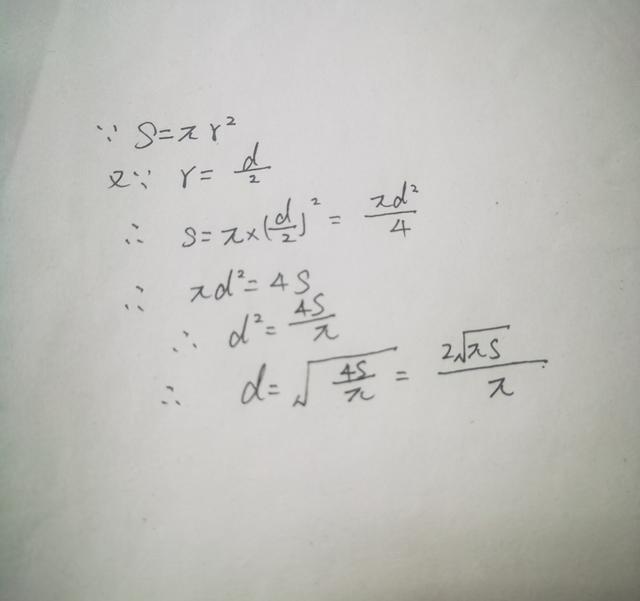 ∵ S=πr²
又∵ r=d/2
∴ S=π×(d/2)²=πd²/4
∴ πd²=4S
∴ d²=4S/π
∴ d=√(4S/π)=2√(πS)/π